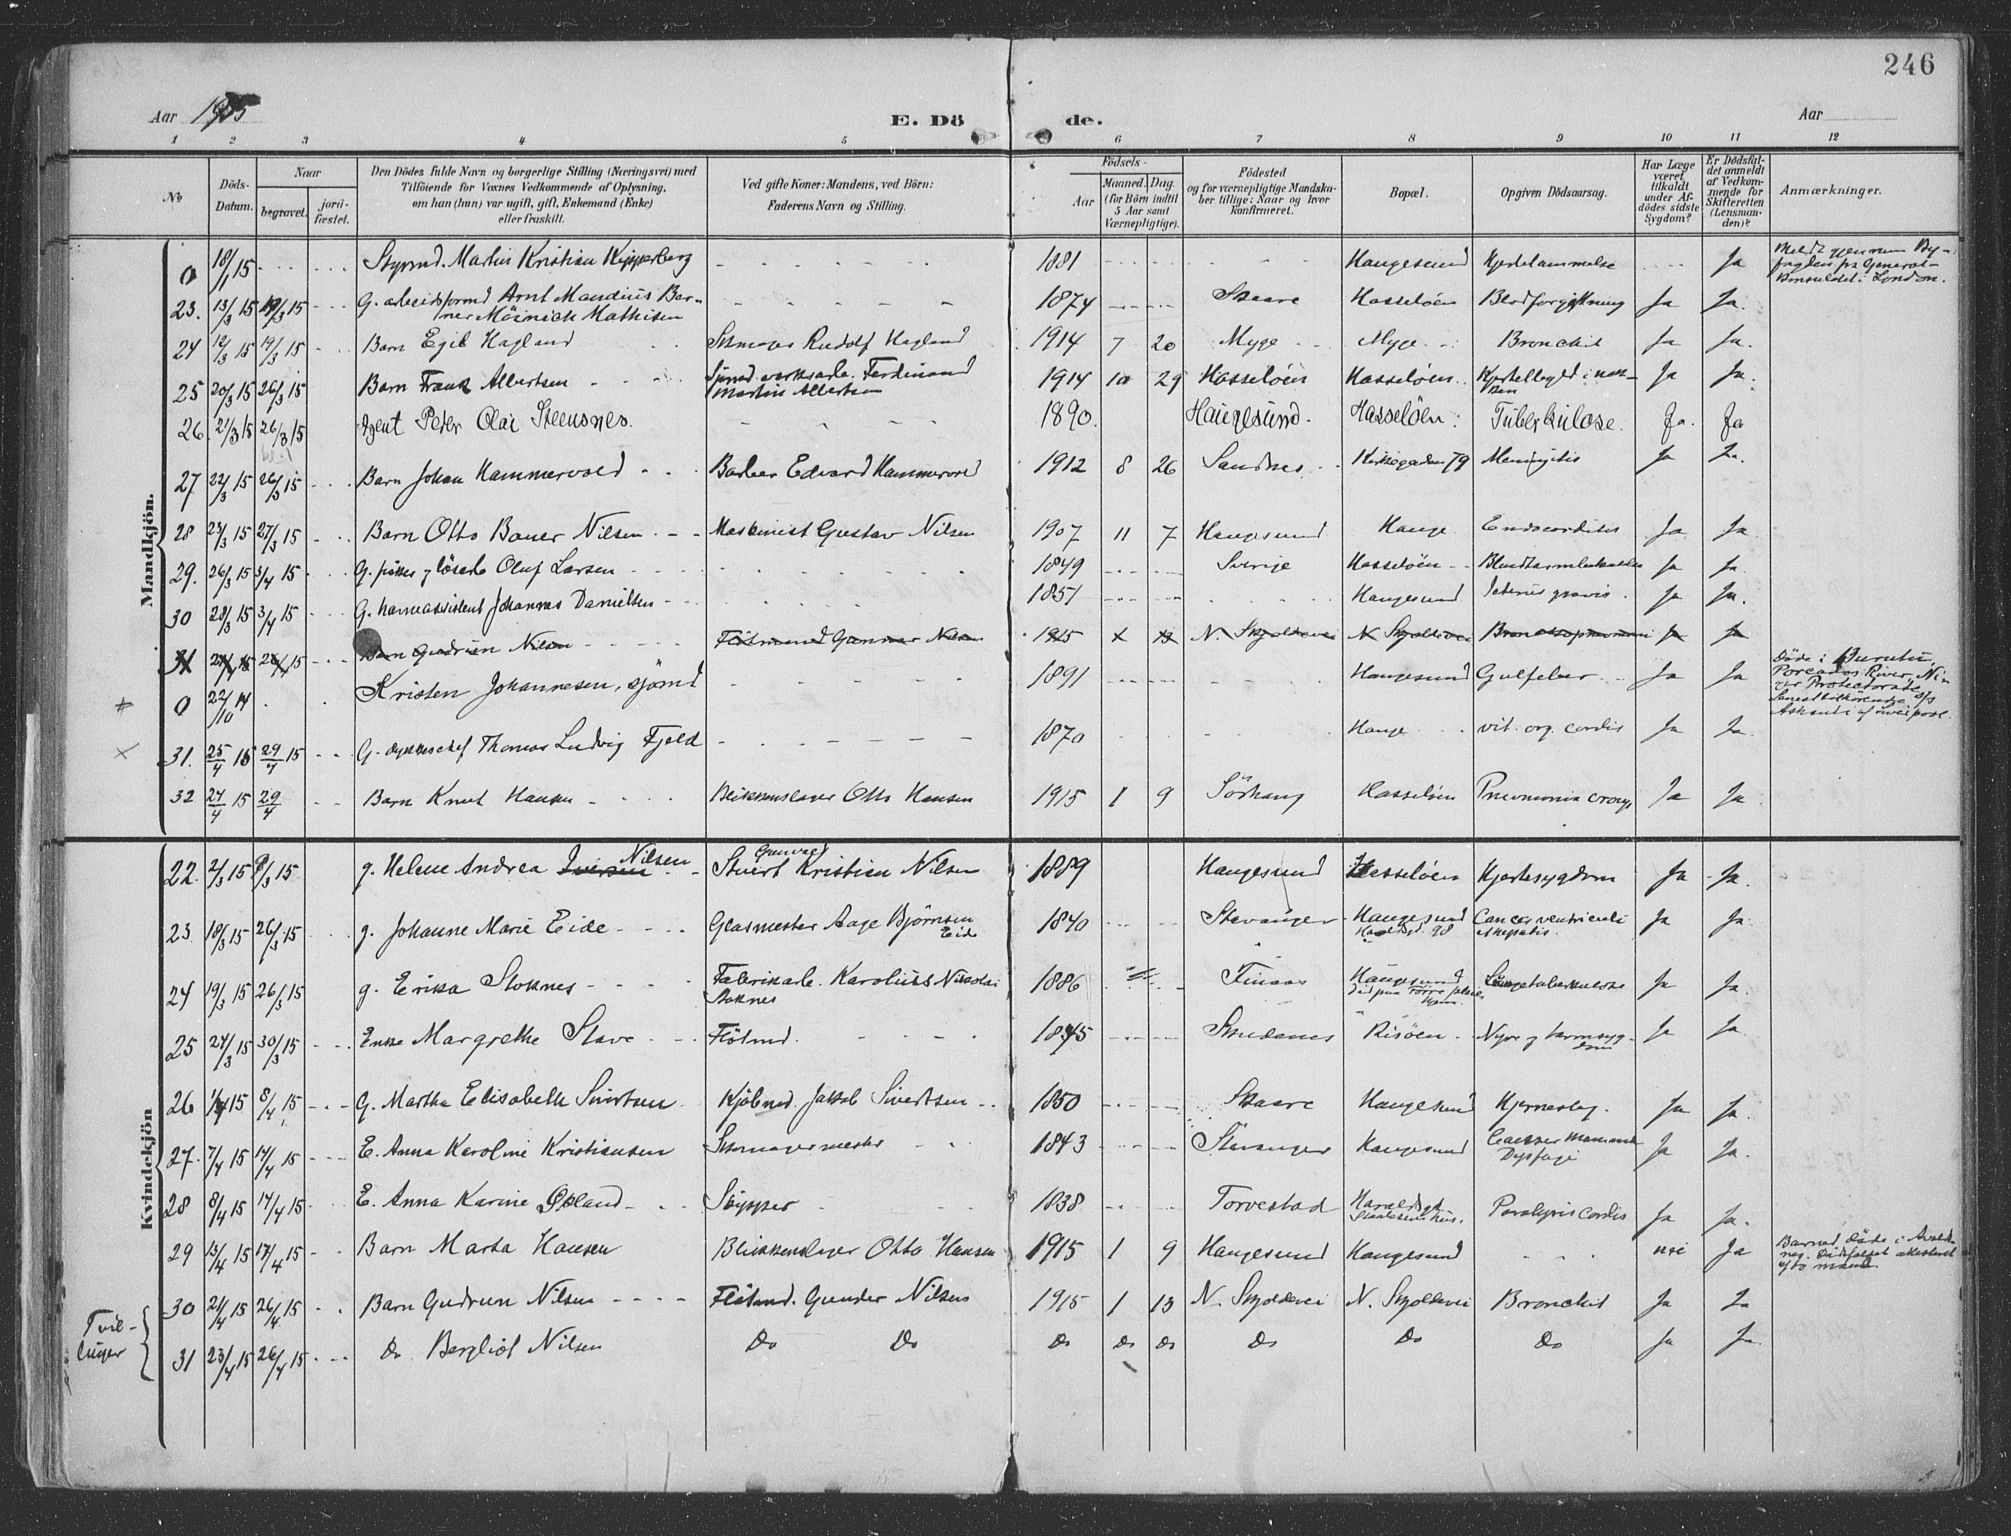 246
Aar 1915
E. Dö de.
Aar
1 2 3 4 5 6 7 8 9 10 11 12
No
Döds-
Datum.
Naar
begravet.
jord-
fæstet.
Den Dödes fulde Navn og borgerlige Stilling (Næringsvei) med
Tilföiende for Voxnes Vedkommende af Oplysning,
om han (hun) var ugift, gift, Enkemand (Enke)
eller fraskilt.
Ved gifte Koner: Mandens, ved Börn:
Faderens Navn og Stilling.
Födsels-
Aar
Maaned. Dag.
(for Börn indtil
5 Aar samt
Værnepligtige).
Födested
og for værnepligtige Mandska-
ber tillige: Naar og hvor
konfirmeret.
Bopæl.
Opgiven Dödsaarsag.
Har Læge
været
tilkaldt
under Af-
dödes sidste
Sygdom?
Er Dödsfal-
det anmeldt
af Vedkom-
mende for
Skifteretten
(Lensman-
den)?
Anmærkninger.
Mandkjön.
0 18/1 15 Styrmd. Martin Kristian Kipperberg 1881 Haugesund Hjertelammelse Ja
23. 13/3 15 19/3 15 G. arbeidsformd Arnt Mandius Bar-
ner Möinich Mathisen 1874 Skaare Hasseløen Blodforgiftning Ja Ja.
24 12/3 15 19/3 15 Barn Egil Hagland Skomager Rudolf Hagland 1914 7 20 Myge Myge Bronchit Ja Ja.
25 20/3 15 26/3 15 Barn Frank Albertsen Ferdinand
Martin Albertsen 1914 10 29 Hasseløen Hasseløen Ja Ja.
26. 21/3 15 26/3 15 Agent Peter Olai Steensnes. 1890. Haugesund. Hasseløen. Tuberkulose. Ja. Ja
27 22/3 15 26/3 15 Barn Johan Hammervold Barber Edvard Hammervold 1912 8 26 Sandnes Kirkegaden 79 Meningitis Ja Ja.
28 23/3 15 27/3 15 Barn Otto Bauer Nilsen Maskinist Gustav Nilsen 1907 11 7 Haugesund Hauge Endocarditis Ja Ja.
29. 26/3 15 3/4 15 G. fisker og løsarb Oluf Larsen 1849 Sverige Hasseløen Ja Ja.
30 28/3 15 3/4 15 G. havneassistent Johannes Danielsen 1851 Haugesund Icterus gravis. Ja Ja.
31 21/4 15 26/4 15 Barn Gudrun Nilsen Flötmand Gunnar Nilsen 1915 1 13 N. Skjoldevei N. Skjoldevei Bronchopneumoni Ja Ja
0 22/10 14 Kristen Johannesen, sjømd 1891 Haugesund Gulfeber Ja Ja Døde i Burutu,
Forcados River, Ni-
ger Protectorate
31. 25/4 15 29/4 15 G. Thomas Ludvig Fjeld 1870 Hauge vit. org. cordis Ja Ja.
32 27/4 15 29/4 Barn Knut Hansen Blikkenslager Otto Hansen 1915 1 9 Sörhaug Hasseløen Pneumonia croup Ja Ja
Kvindekjön
22. 2/3 15 8/3 15 g. Helene Andrea Iversen Nilsen Stuert Kristian Nilsen 1889 Haugesund Hasseløen Hjertesygdom Ja Ja.
23 18/3 15 26/3 15 g. Johanne Marie Eide Glasmester Aage Bjørnsen
Eide 1840 Stavanger Haugesund Cancer ventriculi Ja Ja.
24 19/3 15 26/3 15 g. Erika Stoknes Fabrikarb. Karolius Nikolai
Stoknes 1886 Finaas Haugesund Lungetuberkulose Ja Ja.
25 27/3 15 30/3 15 Enke Margrethe Stave Flötmd. 1845 Skudenes Risøen. Nyre og tarmsyg-
dom Ja Ja.
26 1/4 15 8/4 15 G. Martha Elisabeth Sivertsen Kjöbmd. Jakob Sivertsen 1850 Skaare Haugesund Hjerneslag. Ja Ja.
27. 7/4 15 14/4 15 E. Anna Karoline Kristiansen Skomagermester 1843 Stavanger Haugesund Cancer mammae
Dysfagi Ja Ja.
28 8/4 15 17/4 15 E. Anna Karine Økland Skipper 1838 Torvestad Haraldsgt Paralysis cordis Ja Ja.
29 13/4 15 17/4 15 Barn Marta Hansen Blikkenslager Otto Hansen 1915 1 9 Haugesund Haugesund nei Ja Barnet døde i Avalds-
nes. Dødsfaldet attesteret
af to mænd.
Tvil-
linger
30 21/4 15 26/4 15 Barn Gudrun Nilsen Flötmd. Gunder Nilsen 1915 1 13 N. Skjoldevei N. Skjoldevei Bronchit Ja Ja
31 23/4 15 26/4 15 Do Bergliot Nilsen Do Do Do Do Do Do Do Do Ja Ja.